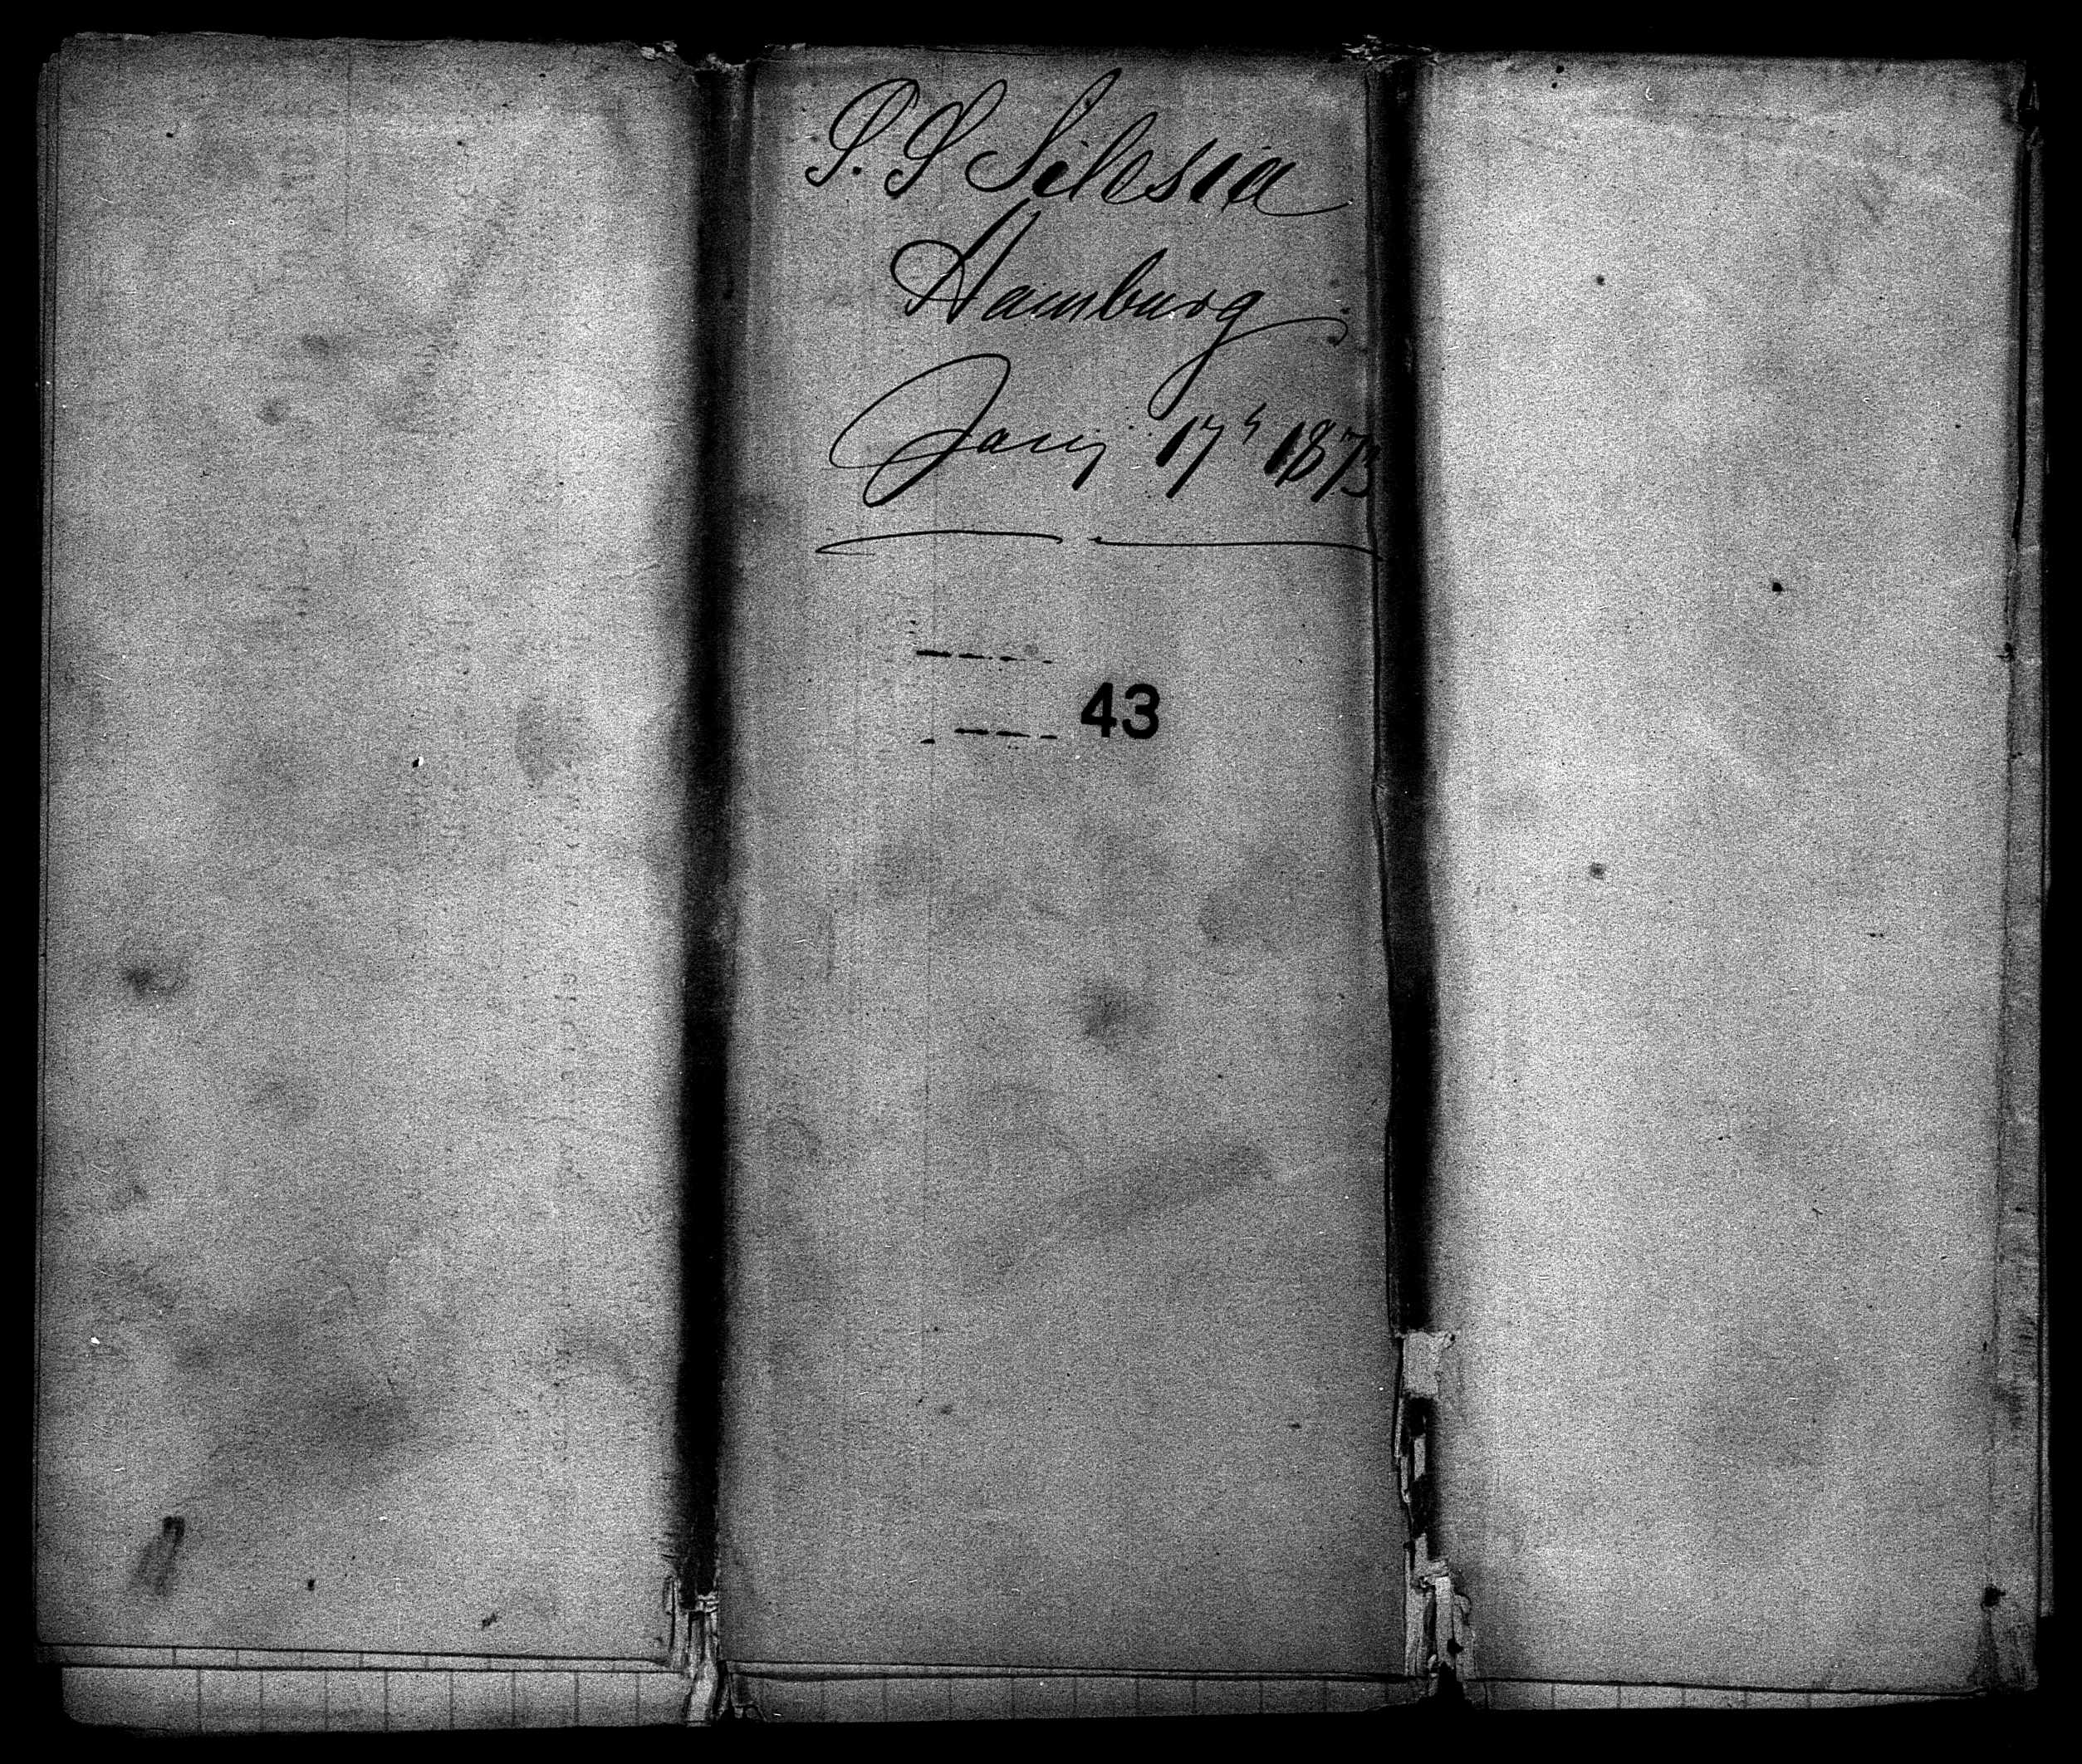 S. S Silesia
Hamburg
Jany 17th 1873
43